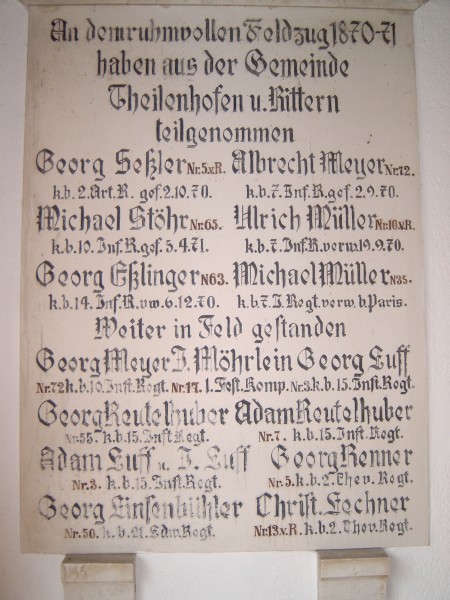 An dem ruhmvollen Feldzug 1870-71
haben aus der Gemeinde
Theilenhofen u. Rittern
teilgenommen
Georg Seßler Nr.5.v.R. Albrecht Meyer Nr.12.
k.b.2.Art.R. gef.2.10.70. k.b.7.Inf.R.gef.2.9.70.
Michael Stöhr Nr.65. Ulrich Müller Nr.10.v.R.
k.b.10.Inf.R.gef.5.4.71. k.b.7.Inf.R.verw.19.9.70.
Georg Eßlinger N63. Michael Müller N35.
k.b.14.Inf.R.vw.6.12.70. k.b.7.I.Regt.verw.b.Paris.
Weiter in Feld gestanden
Georg Meyer J. Möhrlein Georg Luff
Nr.72 k.b.10.Inft.Regt. Nr.17. 1.Fest.Komp. Nr.3 k.b.15.Inft.Regt.
Georg Reutelhuber Adam Reutelhuber
Nr.55. k.b.15.Inft.Regt. Nr.7. k.b.15.Inft.Regt.
Adam Luff u. J. Luff Georg Renner
Nr.3. k.b.15.Inft.Regt. Nr.5.k.b.2.Chev.Regt.
Georg Linsenbühler Christ. Lechner
Nr.50. k.b.21.Ldw.Regt. Nr.13.v.R.k.b.2.Chev.Regt.